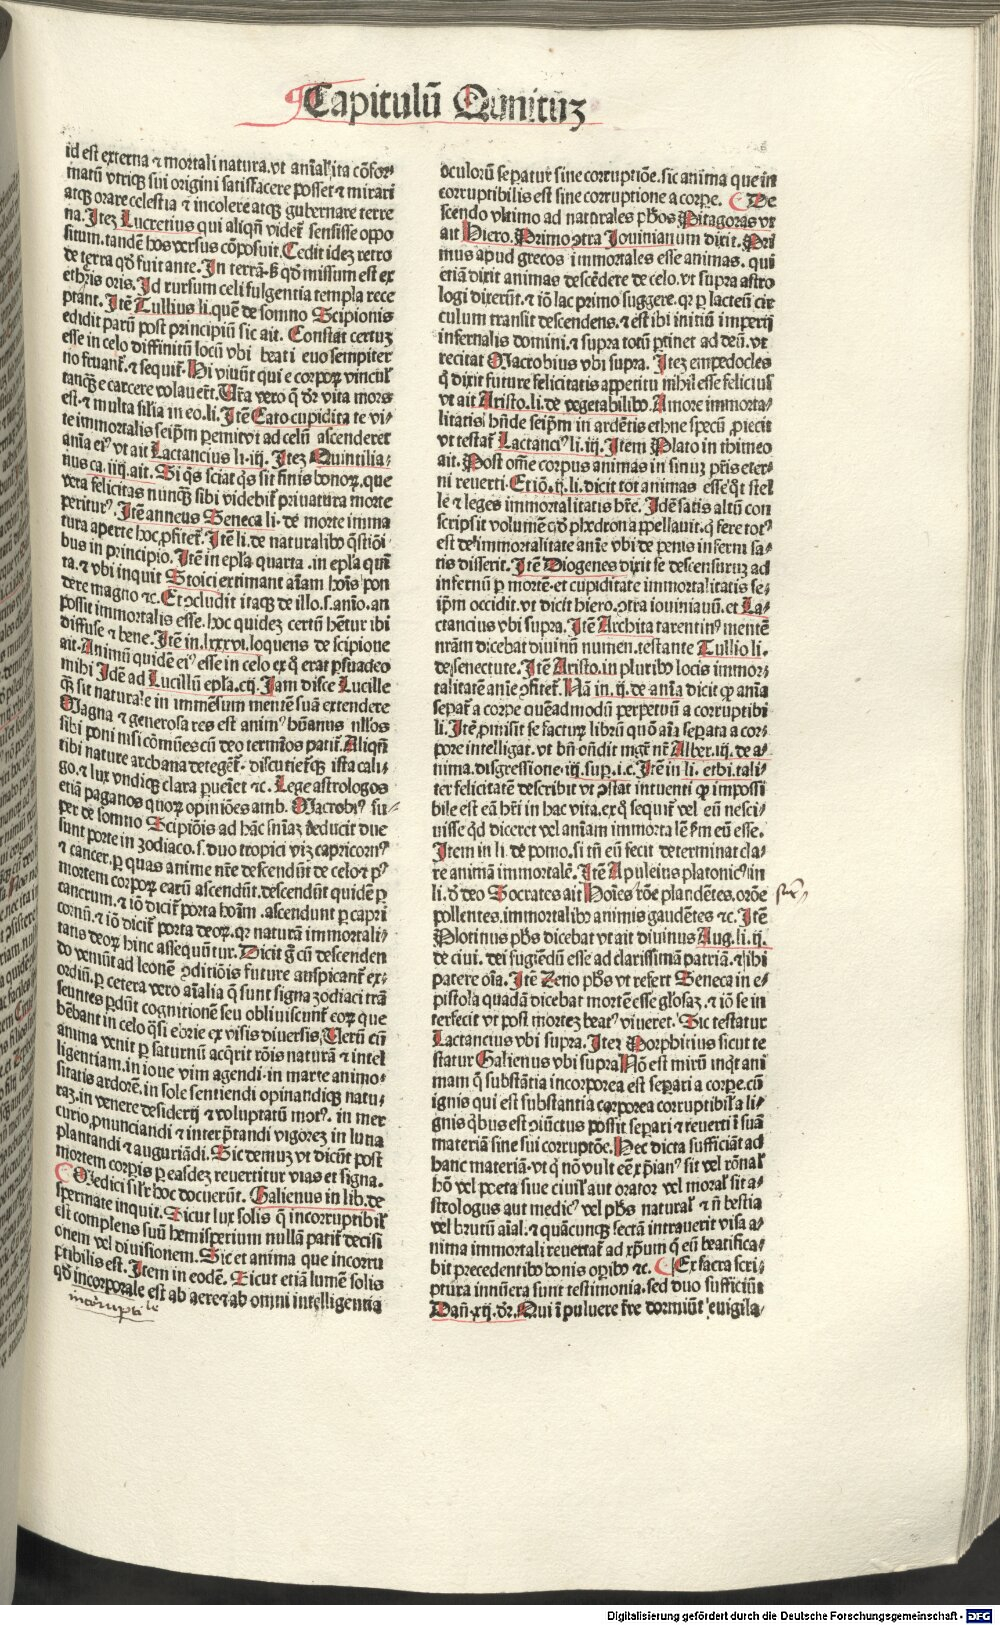 Capitulū Quintuꝫ
id est externa ⁊ mortali natura. vt anīal ita cōfor-
matū vtriqꝫ sui origini satisfacere posset ⁊ mirari
atqꝫ orare celestia ⁊ incolere atqꝫ gubernare terre
na. Iteꝫ Lucretius qui aliqñ videt̄ sensisse oppo
situm. tandē hos versus cōposuit. Cedit ideꝫ retro
de terra qd̓ fuit ante. In terrā. ⁊ qd̓ missum est ex
etheris oris. Id rursum celi fulgentia templa rece
ptant. Itē Tullius li. quē de somno Scipionis
edidit parū post principiū sic ait. Constat certuꝫ
esse in celo diffinitū locū vbi beati euo sempiter
no fruant̄. ⁊ sequit̄. Hi viuūt qui e corpoꝝ vincul̓
tanqꝫ e carcere volauerūt. Vr̄a vero q̄ dr̄ vita mors
est. ⁊ multa silia in eo. li. Itē Cato cupidita te vi-
te immortalis seip̄m ꝑemit vt ad celū ascenderet
anīa ei⁹ vt ait Lactancius li. iij. Iteꝫ Quintilia-
nus ca. iiij. ait. Si q̄s sciat q̄s sit finis bonoꝝ. que
vera felicitas nunqꝫ sibi videbit̄ pri natura morte
peritur⁹. Itē anneus Seneca li. de morte imma
tura aperte hoc ꝓfitet̄. Itē li. de naturalibꝰ q̄stiōi-
bus in principio. Itē in epl̄a quarta. in epl̄a quin̄
ta. ⁊ vbi inquit Stoici extimant aīam hoīs pon
dere magno ⁊c. Et ↄcludit itaqꝫ de illo. s. anīo. an
possit immortalis esse. hoc quidez certū hētur ibi
diffuse ⁊ bene. Itē in. lxxxvi. loquens de scipione
ait. Animū quidē ei⁹ esse in celo ex q̄ erat ꝑsuadeo
mihi Idē ad Lucillū epl̄a. cij. Iam disce Lucille
q̄ꝫ sit naturale in immēsum mentē suā extendere
Magna ⁊ generosa res est anim⁹ hūanus nllos
sibi poni nisi cōmūes cū deo termīos patit̄. Aliqñ
tibi nature archana deteget̄. discutiet̄qꝫ ista cali-
go. ⁊ lux vndiqꝫ clara ꝑueniet ⁊c. Lege astrologos
etiā paganos quoꝝ opiniōes amb. Macrobi⁹ su-
per de somno Scipiōis ad hāc sn̄iaꝫ deducit due
sunt porte in zodiaco. s. duo tropici viꝫ capricorn⁹
⁊ cancer. ꝑ quas anime nr̄e descendūt de celo ⁊ p⁹
mortem corpoꝝ earū ascendūt. descendūt quidē ꝑ
cancrum. ⁊ iō dicit̄ porta hoīm. ascendunt ꝑ capri
cornū. ⁊ iō dicit̄ porta deoꝝ. qꝛ naturā immortali-
tatis deoꝝ hinc assequūtur. Dicit ḡ cū descenden
do veniūt ad leonē ↄditiōis future auspicant̄ ex-
ordiū. ꝑ cetera vero aīalia q̄ sunt signa zodiaci trā
seuntes ꝑdūt cognitionē seu obliuiscunt̄ eoꝝ que
hēbant in celo q̄si ebrie ex visis diuersis. Verū cū
anima venit ꝑ saturnū acq̄rit rōis naturā ⁊ intel
ligentiam. in ioue vim agendi. in marte animo-
sitatis ardorē. in sole sentiendi opinandiqꝫ natu-
raꝫ. in venere desiderij ⁊ voluptatū mot⁹. in mer
curio. ꝓnunciandi ⁊ interp̄tandi vigoreꝫ in luna
plantandi ⁊ auguriādi. Sic demuꝫ vt dicūt post
mortem corꝑis ꝑ easdeꝫ reuertitur vias et signa.
Medici silr̄ hoc docuerūt. Galienus in lib. de
spermate inquit. Sicut lux solis q̄ incorruptibil̓
est complens suū hemisperium nullā patit̄ decisi
onem vel diuisionem. Sic et anima que incorru
ptibilis est. Item in eodē. Sicut etiā lumē solis
qd̓ incorporale est ab aere ⁊ ab omni intelligentia
incorruptibile
oculorū separatur sine corruptiōe. sic anima que in
corruptibilis est sine corruptione a corꝑe. De
scendo vltimo ad naturales phōs Pitagoras vt
ait Hiero. Primo ↄtra Iouinianum dixit. Pri
mus apud grecos immortales esse animas. qui
etiā dixit animas descēdere de celo. vt supra astro
logi dixerūt. ⁊ iō lac primo suggere. qꝛ ꝑ lacteū cir
culum transit descendens. ⁊ est ibi initiū imperij
infernalis domini. ⁊ supra totū ꝑtinet ad deū. vt
recitat Macrobius vbi supra. Iteꝫ empedocles
q̄ dixit future felicitatis appetitu nihil esse felicius
vt ait Aristo. li. de vegetabilibꝰ. Amore immorta-
litatis hn̄de seip̄m in ardētis ethne specū ꝓiecit
vt testat̄ Lactanci⁹ li. iij. Item Plato in thimeo
ait. Post om̄e corpus animas in sinuꝫ pr̄is eter-
ni reuerti. Et iō. ij. li. dicit tot animas esse q̄t stel
le ⁊ leges immortalitatis hr̄e. Idē satis altū con
scripsit volumē qd̓ phedron appellauit. q̄ fere tot⁹
est de immortalitate anīe vbi de penis inferni sa-
tis disserit. Itē Diogenes dixit se descensuruꝫ ad
infernū ꝑ mortē. et cupiditate immortalitatis se-
ip̄m occidit. vt dicit hiero. ↄtra iouinianū. et La-
ctancius vbi supra. Itē Archita tarentin⁹ mentē
nr̄am dicebat diuinū numen. testante Tullio li.
de senectute. Itē Aristo. in pluribꝰ locis immor-
talitatē anīe ↄfitet̄. Nā in. ij. de anīa dicit qꝙ anīa
separat̄ a corꝑe quēadmodū perpetuū a corruptibi
li. Itē ꝓmisit se facturꝫ librū quō aīa seꝑata a cor-
pore intelligat. vt bn̄ on̄dit mgr̄ nr̄ Alber. iij. de a-
nima. disgressione. iij. sup. i. c. Itē in li. ethi. tali-
ter felicitatē describit vt ↄstat intuenti qꝙ impossi
bile est eā hr̄i in hac vita. ex q̄ sequit̄ vel eū nesci-
uisse qd̓ diceret vel anīam immortalē s̄m eū esse.
Item in li. de pomo. si tn̄ eū fecit determinat cla-
re animā immortalē. Itē Apuleius platonic⁹ in
li. d̓ deo Socrates ait Hoīes rōe plaudētes. orōe
pollentes. immortalibꝰ animis gaudētes ⁊c. Itē
Plotinus phōs dicebat vt ait diuinus Aug. li. ij.
de ciui. dei fugiēdū esse ad clarissimā patriā. ⁊ ibi
patere oīa. Itē Zeno phōs vt refert Seneca in e-
pistola quadā dicebat mortē esse gl̄osaꝫ. ⁊ iō se in
terfecit vt post morteꝫ beat⁹ viueret. Sic testatur
Lactancius vbi supra. Iteꝫ Porphirius sicut te
statur Galienus vbi supra Nō est mirū inq̄t ani
mam q̄ substātia incorporea est seꝑari a corꝑe. cū
ignis qui est substantia corporea corruptibil̓ a li-
gnis q̄bus est ↄiūctus possit seꝑari ⁊ reuerti ī suā
materiā sine sui corruptōe. Hec dicta sufficiāt ad
hanc materiā. vt q̄ nō vult eē xp̄ian⁹ sit vel rōnal̓
hō vel poeta siue ciuil̓ aut orator vel moral̓ sit a-
strologus aut medic⁹ vel phōs natural̓ ⁊ ñ bestia
vel brutū aīal. ⁊ quācunqꝫ sectā intrauerit visa a-
nima immortali reuertat̄ ad xp̄um q̄ eū beatifica-
bit precedentibꝰ bonis oꝑibꝰ ⁊c. Ex sacra scri-
ptura innūera sunt testimonia. sed duo sufficiūt
Dañ. xij. dr̄. Qui ī puluere tr̄re dormiūt euigila-
Digitalisierung gefördert durch die Deutsche Forschungsgemeinschaft - DFG